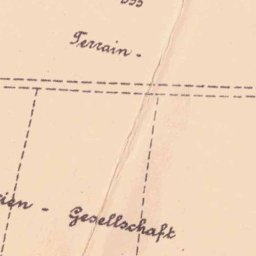 Terrain-
Gesellschaft